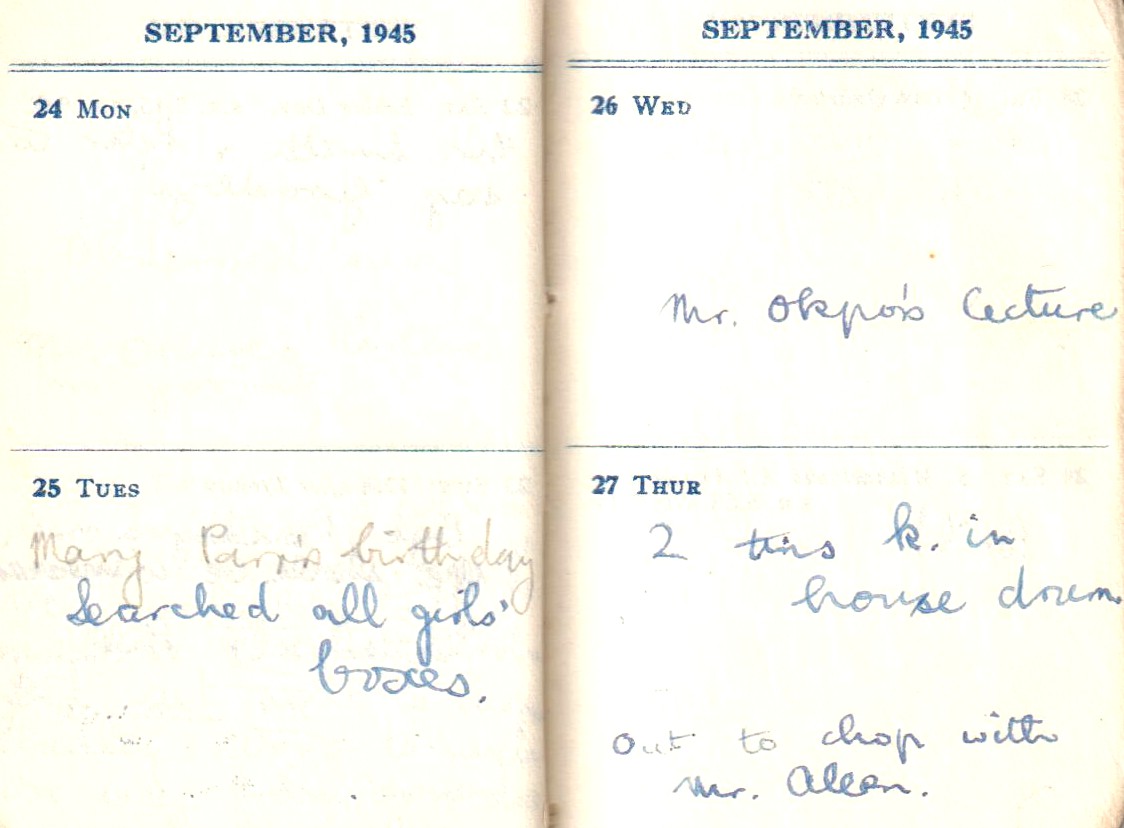 SEPTEMBER, 1945
24 MON
25 TUES
Mary Parr's birthday
Searched all girls'
boxes.
SEPTEMBER, 1945
26 WED
Mr. Okpo's lecture
27 THUR
2 tins k. in
house drum.
Out to chop with
Mr. Allen.